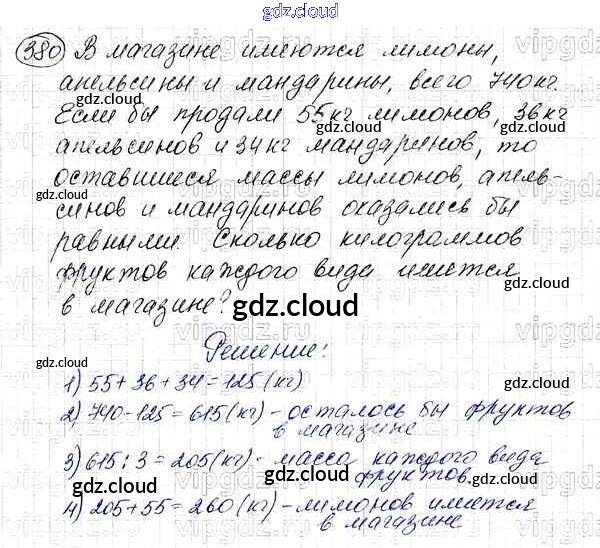 gdz.cloud
380 В магазине имеются лимоны,
апельсины и мандарины, всего 740 кг.
Если бы продали 55 кг лимонов, 36 кг
апельсинов и 34 кг мандаринов, то
оставшиеся массы лимонов, апель-
синов и мандаринов оказались бы
равными. Сколько килограммов
фруктов каждого вида имеется
в магазине?
gdz.cloud
Решение:
1) 55+36+34=125(кг)
2) 740-125=615(кг)-осталось бы фруктов
в магазине
3) 615:3=205(кг)-масса каждого вида
фруктов.
4) 205+55=260(кг)-лимонов имеется
в магазине